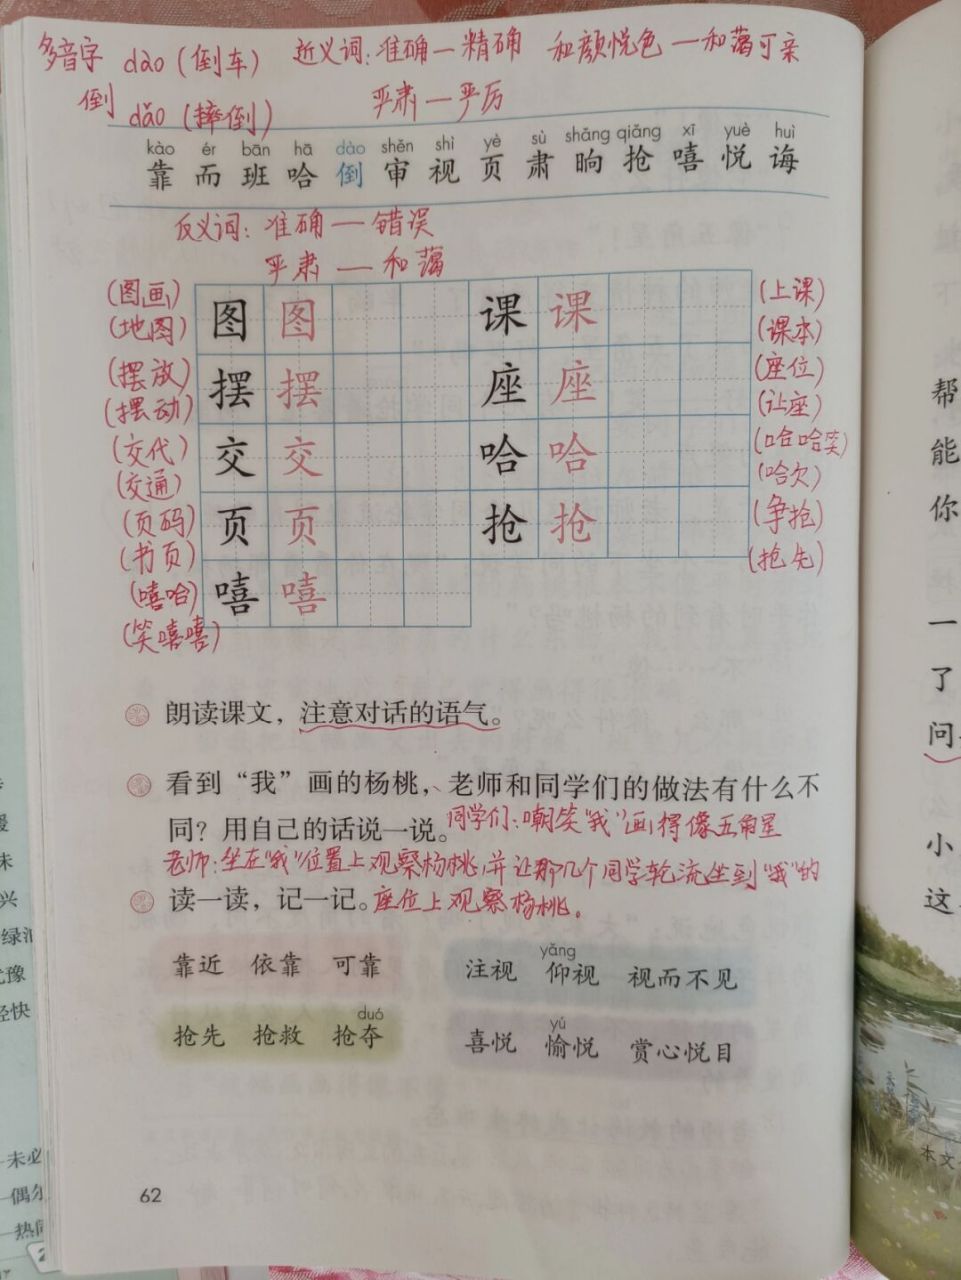 多音字 dào（倒车） 近义词：准确—精确 和颜悦色—和蔼可亲
倒 dǎo（摔倒） 严肃—严厉
kào ér bān hā dào shěn shì yè sù shǎng qiǎng xī yuè huì
靠 而 班 哈 倒 审 视 页 肃 晌 抢 嘻 悦 诲
反义词：准确—错误
严肃—和蔼
（图画） 图 图 课 课 （上课）
（地图） （课本）
（摆放） 摆 摆 座 座 （座位）
（摆动） （让座）
（交代） 交 交 哈 哈 （哈哈笑）
（交通） （哈欠）
（页码） 页 页 抢 抢 （争抢）
（书页） （抢先）
（嘻哈） 嘻 嘻
（笑嘻嘻）
朗读课文，注意对话的语气。
看到“我”画的杨桃，老师和同学们的做法有什么不
同？用自己的话说一说。同学们：嘲笑“我”画得像五角星
老师：坐在“我”位置上观察杨桃，并让那几个同学轮流坐到“我”的
读一读，记一记。座位上观察杨桃。
靠近 依靠 可靠
yǎng
注视 仰视 视而不见
duó
抢先 抢救 抢夺
yú
喜悦 愉悦 赏心悦目
62
帮
能
你
一
了
问
小
这
本文
未
兴
豫
轻快
未必
偶尔